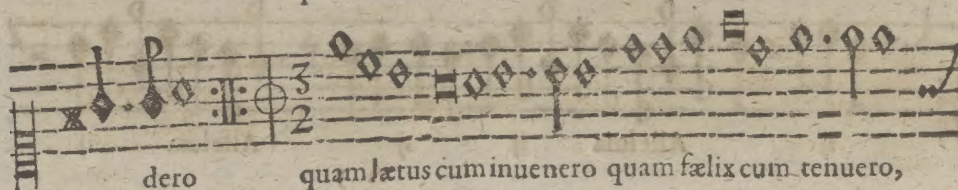 3
2
dero quam lætus cum inuenero quam fælix cum tenuero,